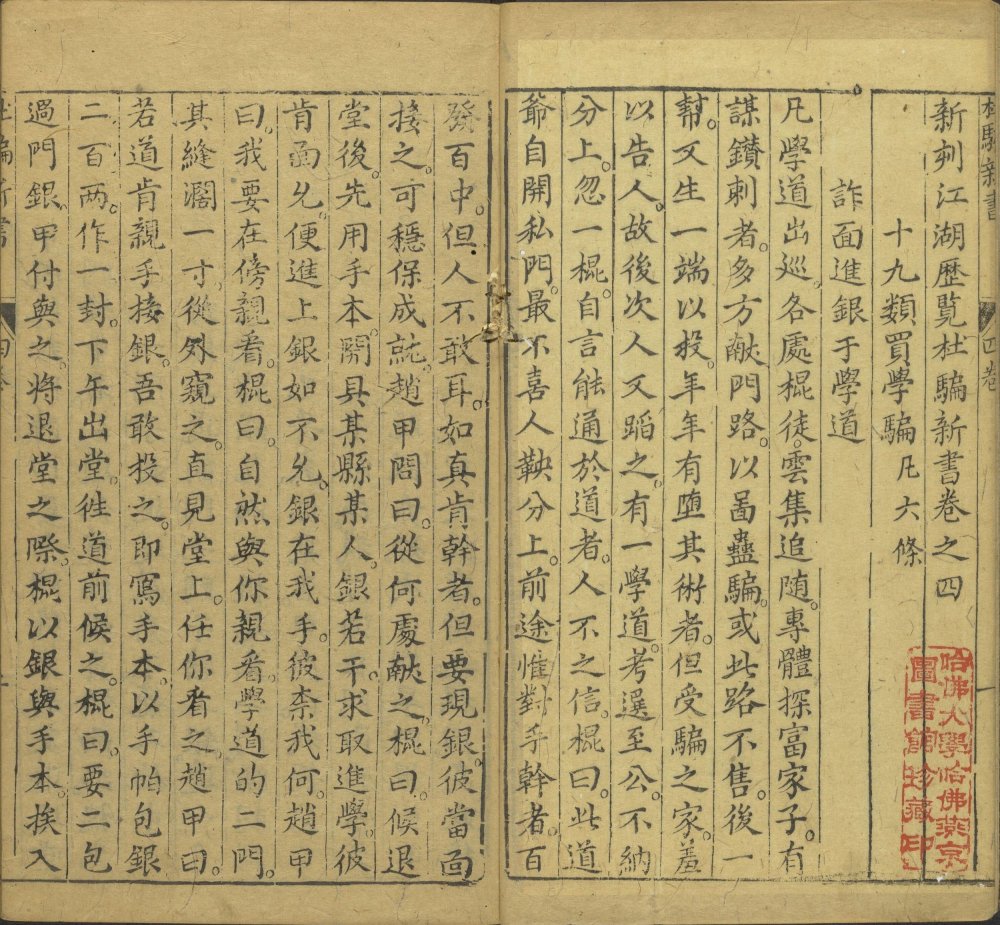 杜騙新書
四卷
新刻江湖歷覽杜騙新書卷之四
十九類買學騙 凡六條
詐面進銀于學道
凡學道出巡。各處棍徒。雲集追隨。專體探富家子。有
謀鑽刺者。多方献門路。以啚蠱騙。或此路不售。後一
幫。又生一端以投。年年有堕其術者。但受騙之家。羞
以告人。故後次人又蹈之。有一學道。考選至公。不納
分上。忽一棍。自言能通於道者。人不之信。棍曰。此道
爺自開私門。最不喜人鞅分上。前途惟對手幹者。百
發百中。但人不敢耳。如真肯幹者。但要現銀。彼當面
接之。可穩保成就。趙甲問曰。從何處献之。棍曰。候退
堂後。先用手本。開具某縣某人。銀若干。求取進學。彼
肯面允。便進上銀。如不允。銀在我手。彼柰我何。趙甲
曰。我要在傍親看。棍曰。自然與你親看。學道的二門。
其縫濶一寸。從外窺之。直見堂上。任你看之。趙甲曰。
若道肯親手接銀。吾敢投之。即寫手本。以手帕包銀
二百两。作一封。下午出堂。徃道前候之。棍曰。要二包
過門銀。甲付與之。将退堂之際。棍以銀與手本。挨入
杜騙新書
四卷
哈佛大學哈佛燕京
圖書館珍藏印